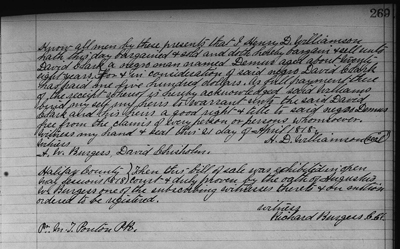 269
Know all men by these presents that I Henry D. Williamson
hath this day bargained & sold and doth hereby bargain & sell unto
David Clark a negro man named Demus aged about twenty
eight years. For & in consideration of said negro David Clark
has paid me five hundred dollars in full payment there
of the receipt whereof is hereby acknowledged said Williams
bind my self my heirs to warrant unto the said David
Clark and his heirs a good right & title to said negro Demus
free from the claims of every person or persons whomsoever.
Witness my hand & seal this 21 day of April 1815
H. D. Williamson (seal)
A. W. Burges, David Chisholm
Halifax County } Then this bill of sale was exhibited in open
Court & duly proven by the oath of
Burges one of the subscribing witnesses thereto & on motion
ordered to be registered.
witness
Richard Burges
Pr. M. T. Ponton P.R.